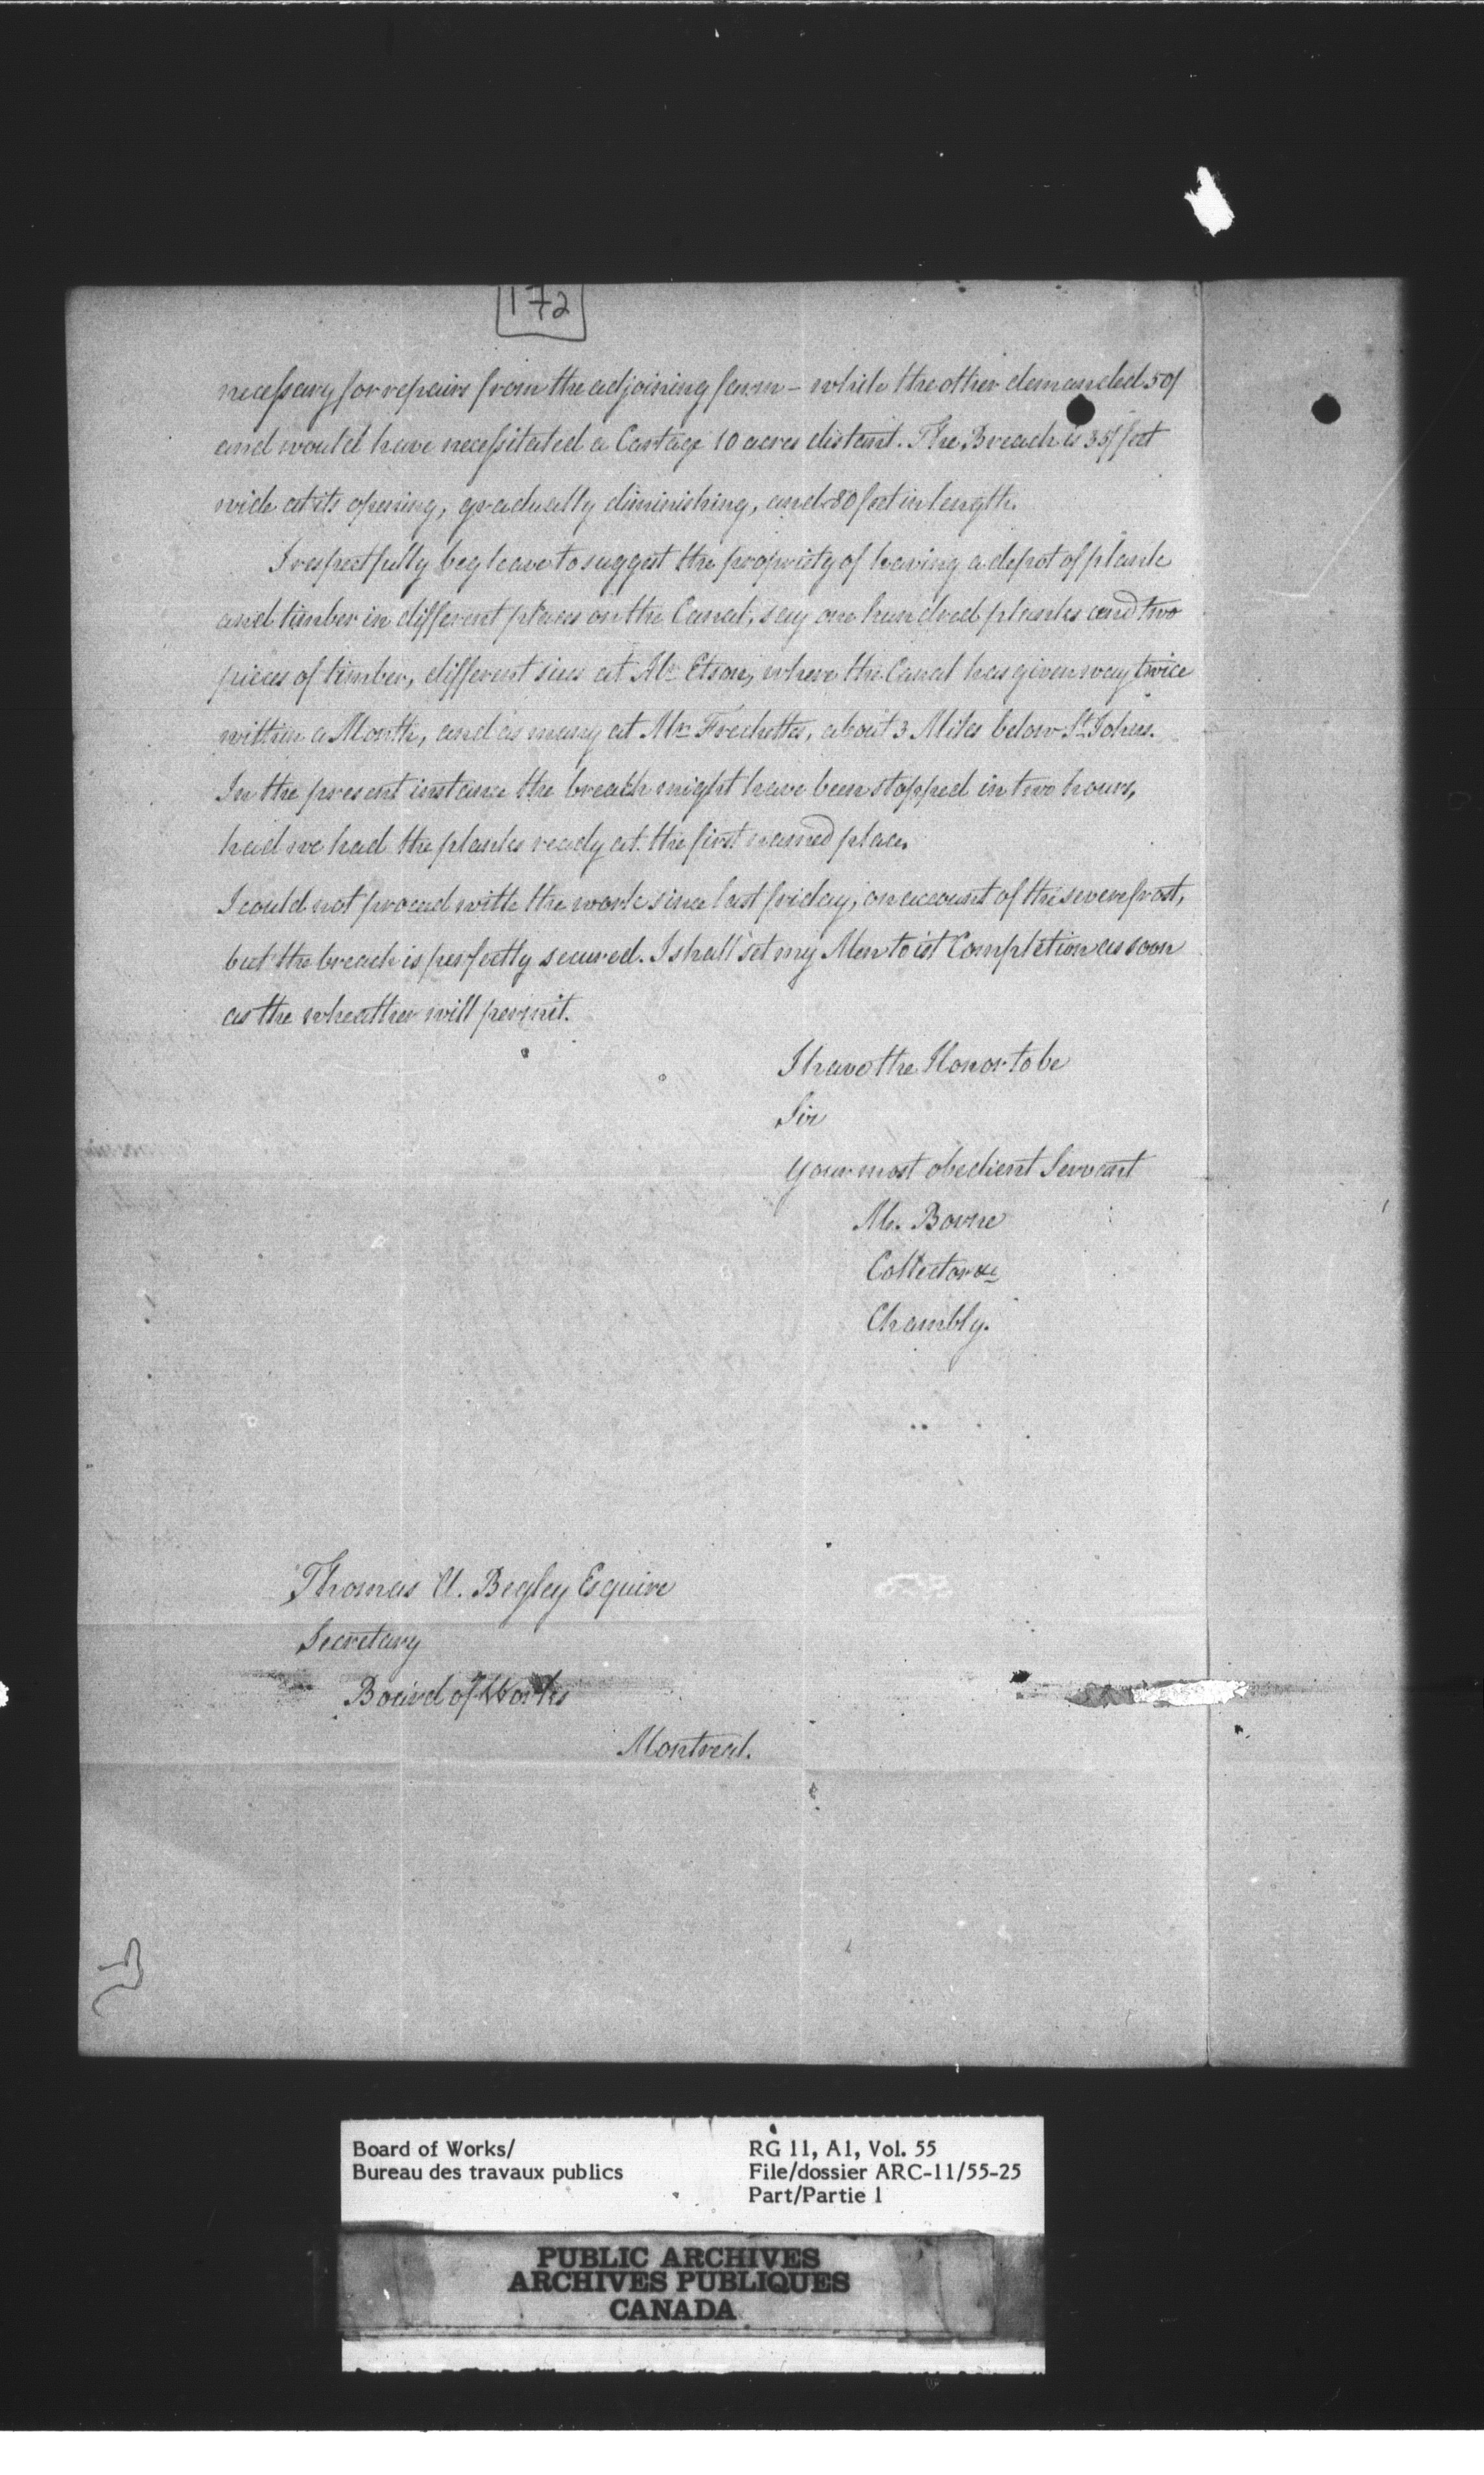 172
necessary for repairs from the adjoining farm – while the other demanded 50/
and would have necessitated a Cartage 10 acres distant. The Breach is 35 feet
wide at its opening, gradually diminishing, and 80 feet in length.
I respectfully beg leave to suggest the propriety of having a depot of plank
and timber in different places on the Canal, say one hundred planks and two
pieces of timber, different sises at Mr Etson, where the Canal has given way twice
within a Month, and as many at Mr Frechettes, about 3 Miles below St Johns.
In the present instance the breach might have been stopped in two hours,
had we had the planks ready at the first named place.
I could not proceed with the work since last friday, on account of the severe frost,
but the breach is perfectly secured. I shall set my Men to ist Completion as soon
as the wheather will permit.
I have the Honor to be
Sir
Your most obedient Servant
Collector &c
Chambly.
Thomas A. Begley Esquire
Secretary
Board of Works
Montreal.
Board of Works/
Bureau des travaux publics
RG 11, A1, Vol. 55
File/dossier ARC-11/55-25
Part/Partie 1
PUBLIC ARCHIVES
ARCHIVES PUBLIQUES
CANADA